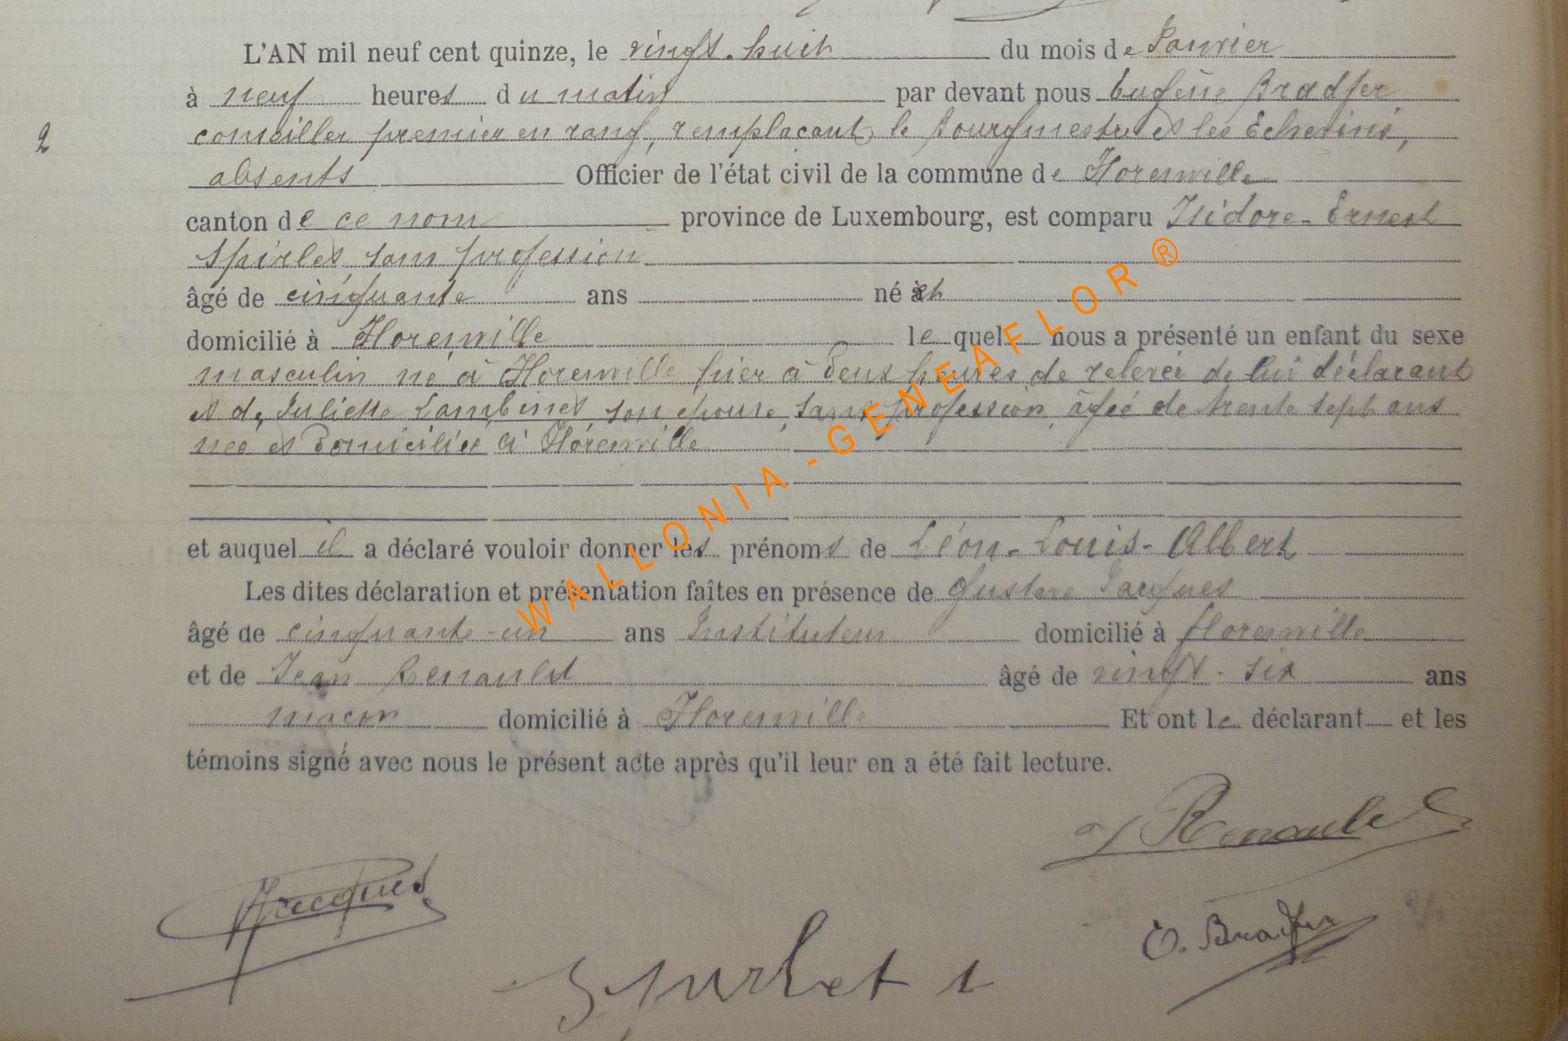 L'AN mil neuf cent quinze, le vingt-huit du mois de Janvier
à neuf heures du matin par devant nous Eugène Bradfer,
2
conseiller premier en rang, remplaçant le bourgmestre et les Echevins,
absents Officier de l'état civil de la commune de Florenville
canton de ce nom province de Luxembourg, est comparu Isidore-Ernest
sans profession
âgé de cinquante ans né à et
domicilié à Florenville lequel nous a présenté un enfant du sexe
masculin né à Florenville hier à deux heures de relevée de lui déclarant
et de Juliette Lambinet son épouse, sans profession, âgée de trente sept ans
née et domiciliée à Florenville
et auquel il a déclaré vouloir donner les prénoms de Léon-Louis-Albert
Les dites déclaration et présentation faites en présence de Gustave Jacques
âgé de cinquante-un ans Instituteur domicilié à Florenville
et de Jean Renauld âgé de vingt-six ans
maçon domicilié à Florenville Et ont le déclarant et les
témoins signé avec nous le présent acte après qu'il leur en a été fait lecture.
Renauld
Jacques
E. Bradfer
WALLONIA-GENEAFLOR®